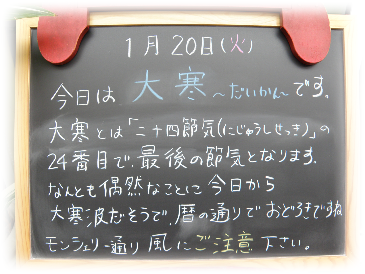 1月20日(火)
今日は 大寒 ~だいかん~です。
大寒とは「二十四節気(にじゅうしせっき)」の
24番目で、最後の節気となります。
なんとも偶然なことに今日から
大寒波だそうで、暦の通りでおどろきですね
モンシェリー通り 風にご注意下さい。